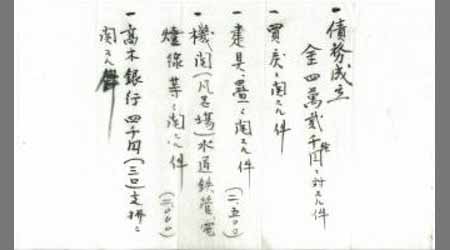 一 債務成立
金四萬貳千円ニ対スル件
一 買戻ニ関スル件
一 建具、畳ニ関スル件
(二、五〇〇)
一 機関(風呂場)水道鉄管、電
燈線等ニ関スル件
(三〇〇〇)
一 高木銀行四千円(三口)支拂ニ
関スル件